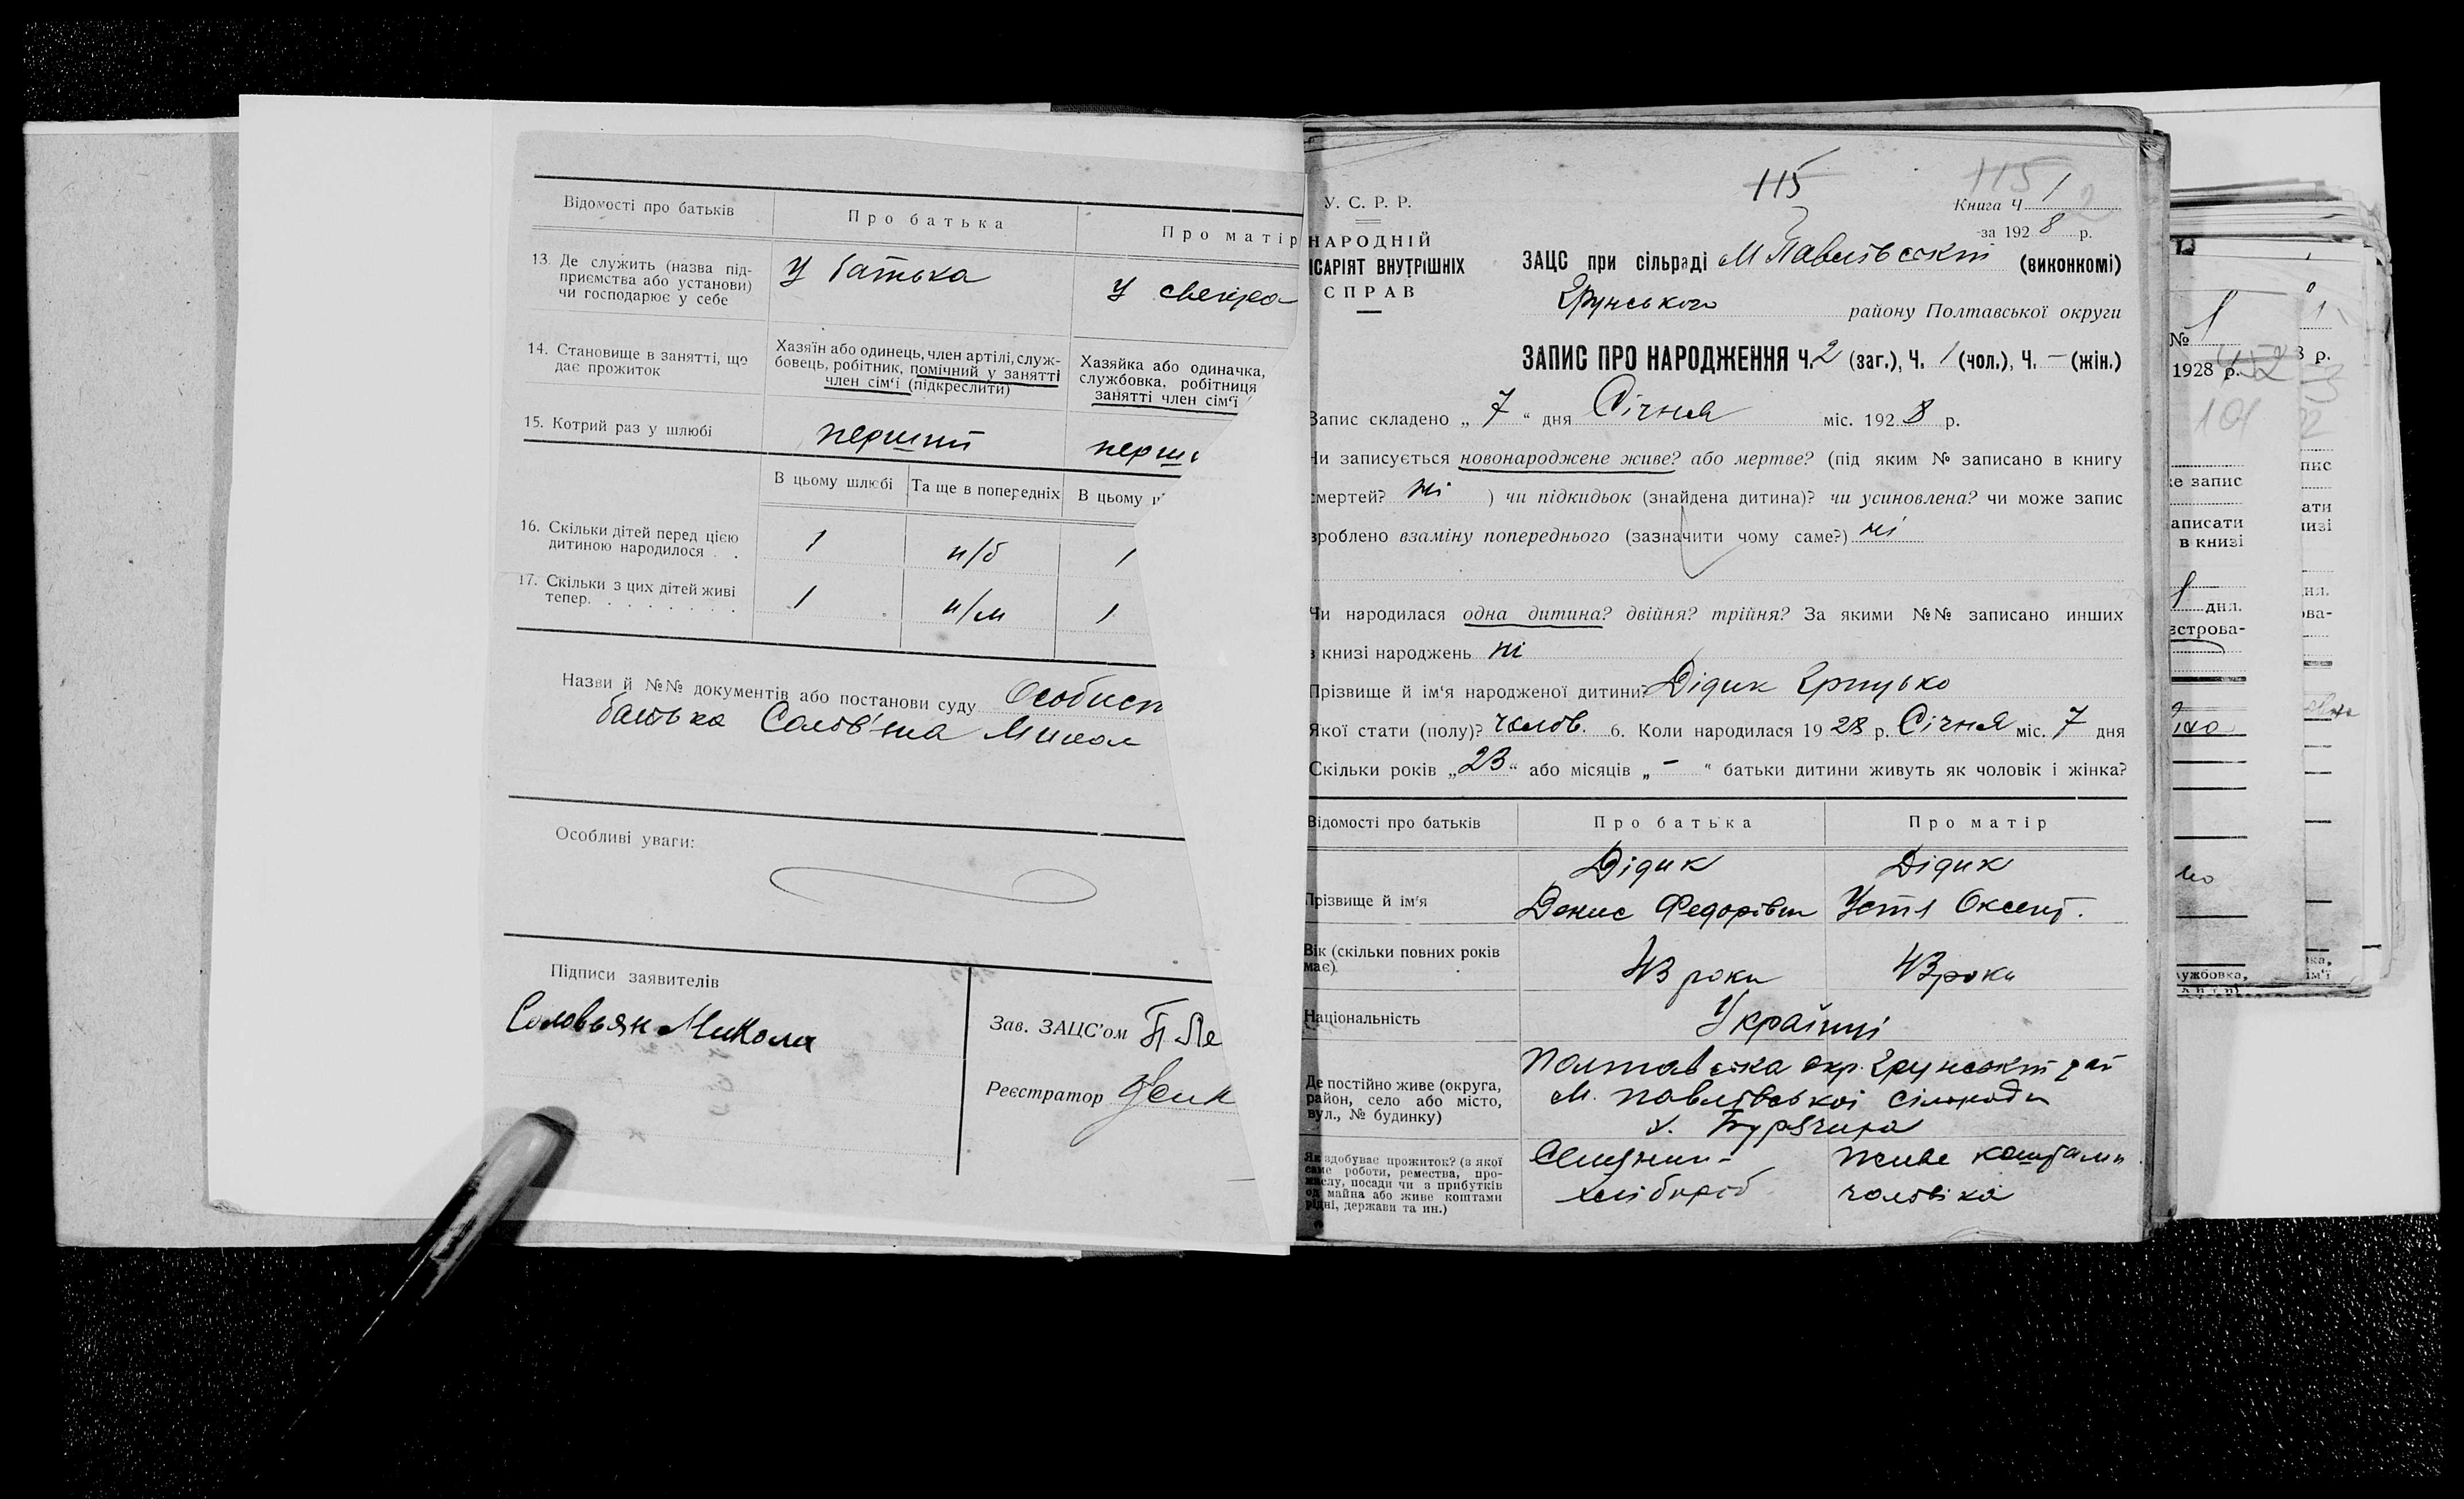 Відомості про батьків
Про батька
Про матір
13. Де служить (назва під-
приємства або установи)
чи господарює у себе
У батька
У свекра
14. Становище в занятті, що
дає прожиток
Хазяїн або одинець, член артілі, служ-
бовець, робітник, помічний у занятті
член сім'ї (підкреслити)
Хазяйка або одиначка,
службовка, робітниця
занятті член сім'ї
15. Котрий раз у шлюбі
перший
перш
В цьому шлюбі
Та ще в попередніх
В цьому
16. Скільки дітей перед цією
дитиною народилося . .
1
н/б
1
17. Скільки з цих дітей живі
тепер. . . . . . . .
1
н/м
1
Назви й №№ документів або постанови суду Особист
батька Солов'яна Микол
Особливі уваги:
Підписи заявителів
Соловьян Микола
Зав. ЗАЦС'ом П Ле
Реєстратор
115
115
У. С. Р. Р.
Книга Ч 1
2
за 1928 р.
НАРОДНІЙ
ІСАРІЯТ ВНУТРІШНІХ
СПРАВ
ЗАЦС при сільраді М Павлівській (виконкомі)
Грунського району Полтавської округи
ЗАПИС ПРО НАРОДЖЕННЯ Ч. 2 (заг.), Ч. 1 (чол.), Ч. — (жін.)
Запис складено „ 7 “ дня Січня міс. 1928 р.
Чи записується новонароджене живе? або мертве? (під яким № записано в книгу
смертей? ні ) чи підкидьок (знайдена дитина)? чи усиновлена? чи може запис
зроблено взаміну попереднього (зазначити чому саме?) ні
Чи народилася одна дитина? двійня? трійня? За якими №№ записано инших
в книзі народжень ні
Прізвище й ім'я народженої дитини? Дідик Грицько
Якої стати (полу)? чолов. 6. Коли народилася 1928 р. Січня міс. 7 дня
Скільки років „23“ або місяців „ – “ батьки дитини живуть як чоловік і жінка?
Відомості про батьків
Про батька
Про матір
Прізвище й ім'я
Дідик
Денис Федорівич
Дідик
Устя Оксент.
Вік (скільки повних років
має)
43 роки
43 роки
Національність
Українці
Де постійно живе (округа,
район, село або місто,
вул., № будинку)
Полтавська окр. Грунський рай
М. Павлівської сільради
х. Бурячиха
Як здобуває прожиток? (з якої
саме роботи, ремества, про-
мислу, посади чи з прибутків
од майна або живе коштами
рідні, держави та ин.)
Селянин-
хлібороб
живе коштами
чоловіка
№ 1
1928 р.
452
101
е запис
аписати
в книзі
дня.
єстрова-
ужбовка,